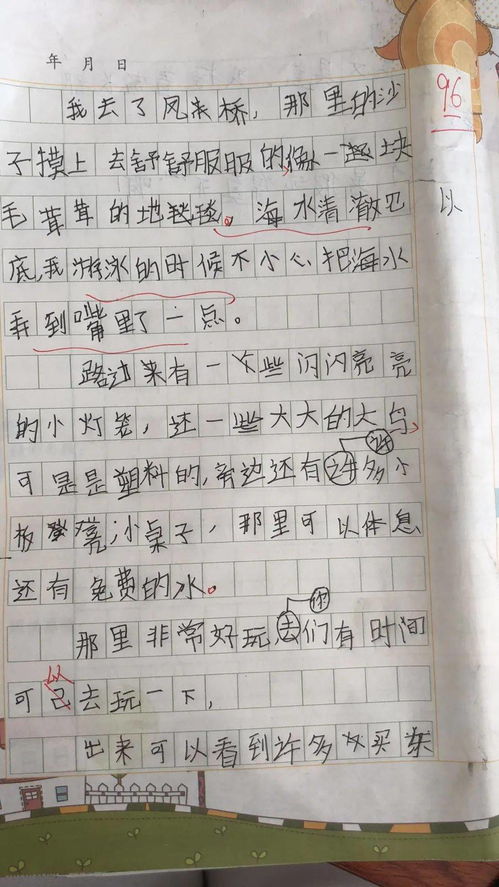 年 月 日
96
我去了凤来桥，那里的沙
子摸上去舒舒服服的像一块
毛茸茸的地毯。海水清澈见
底，我游泳的时候不小心把海水
弄到嘴里了一点。
以
路过来有一些闪闪亮亮
的小灯笼，还一些大大的大鸟，
可是是塑料的，旁边还有许多小
板凳小桌子，那里可以体息
还有免费的水。
那里非常好玩你们有时间
可以去玩一下，
出来可以看到许多买东